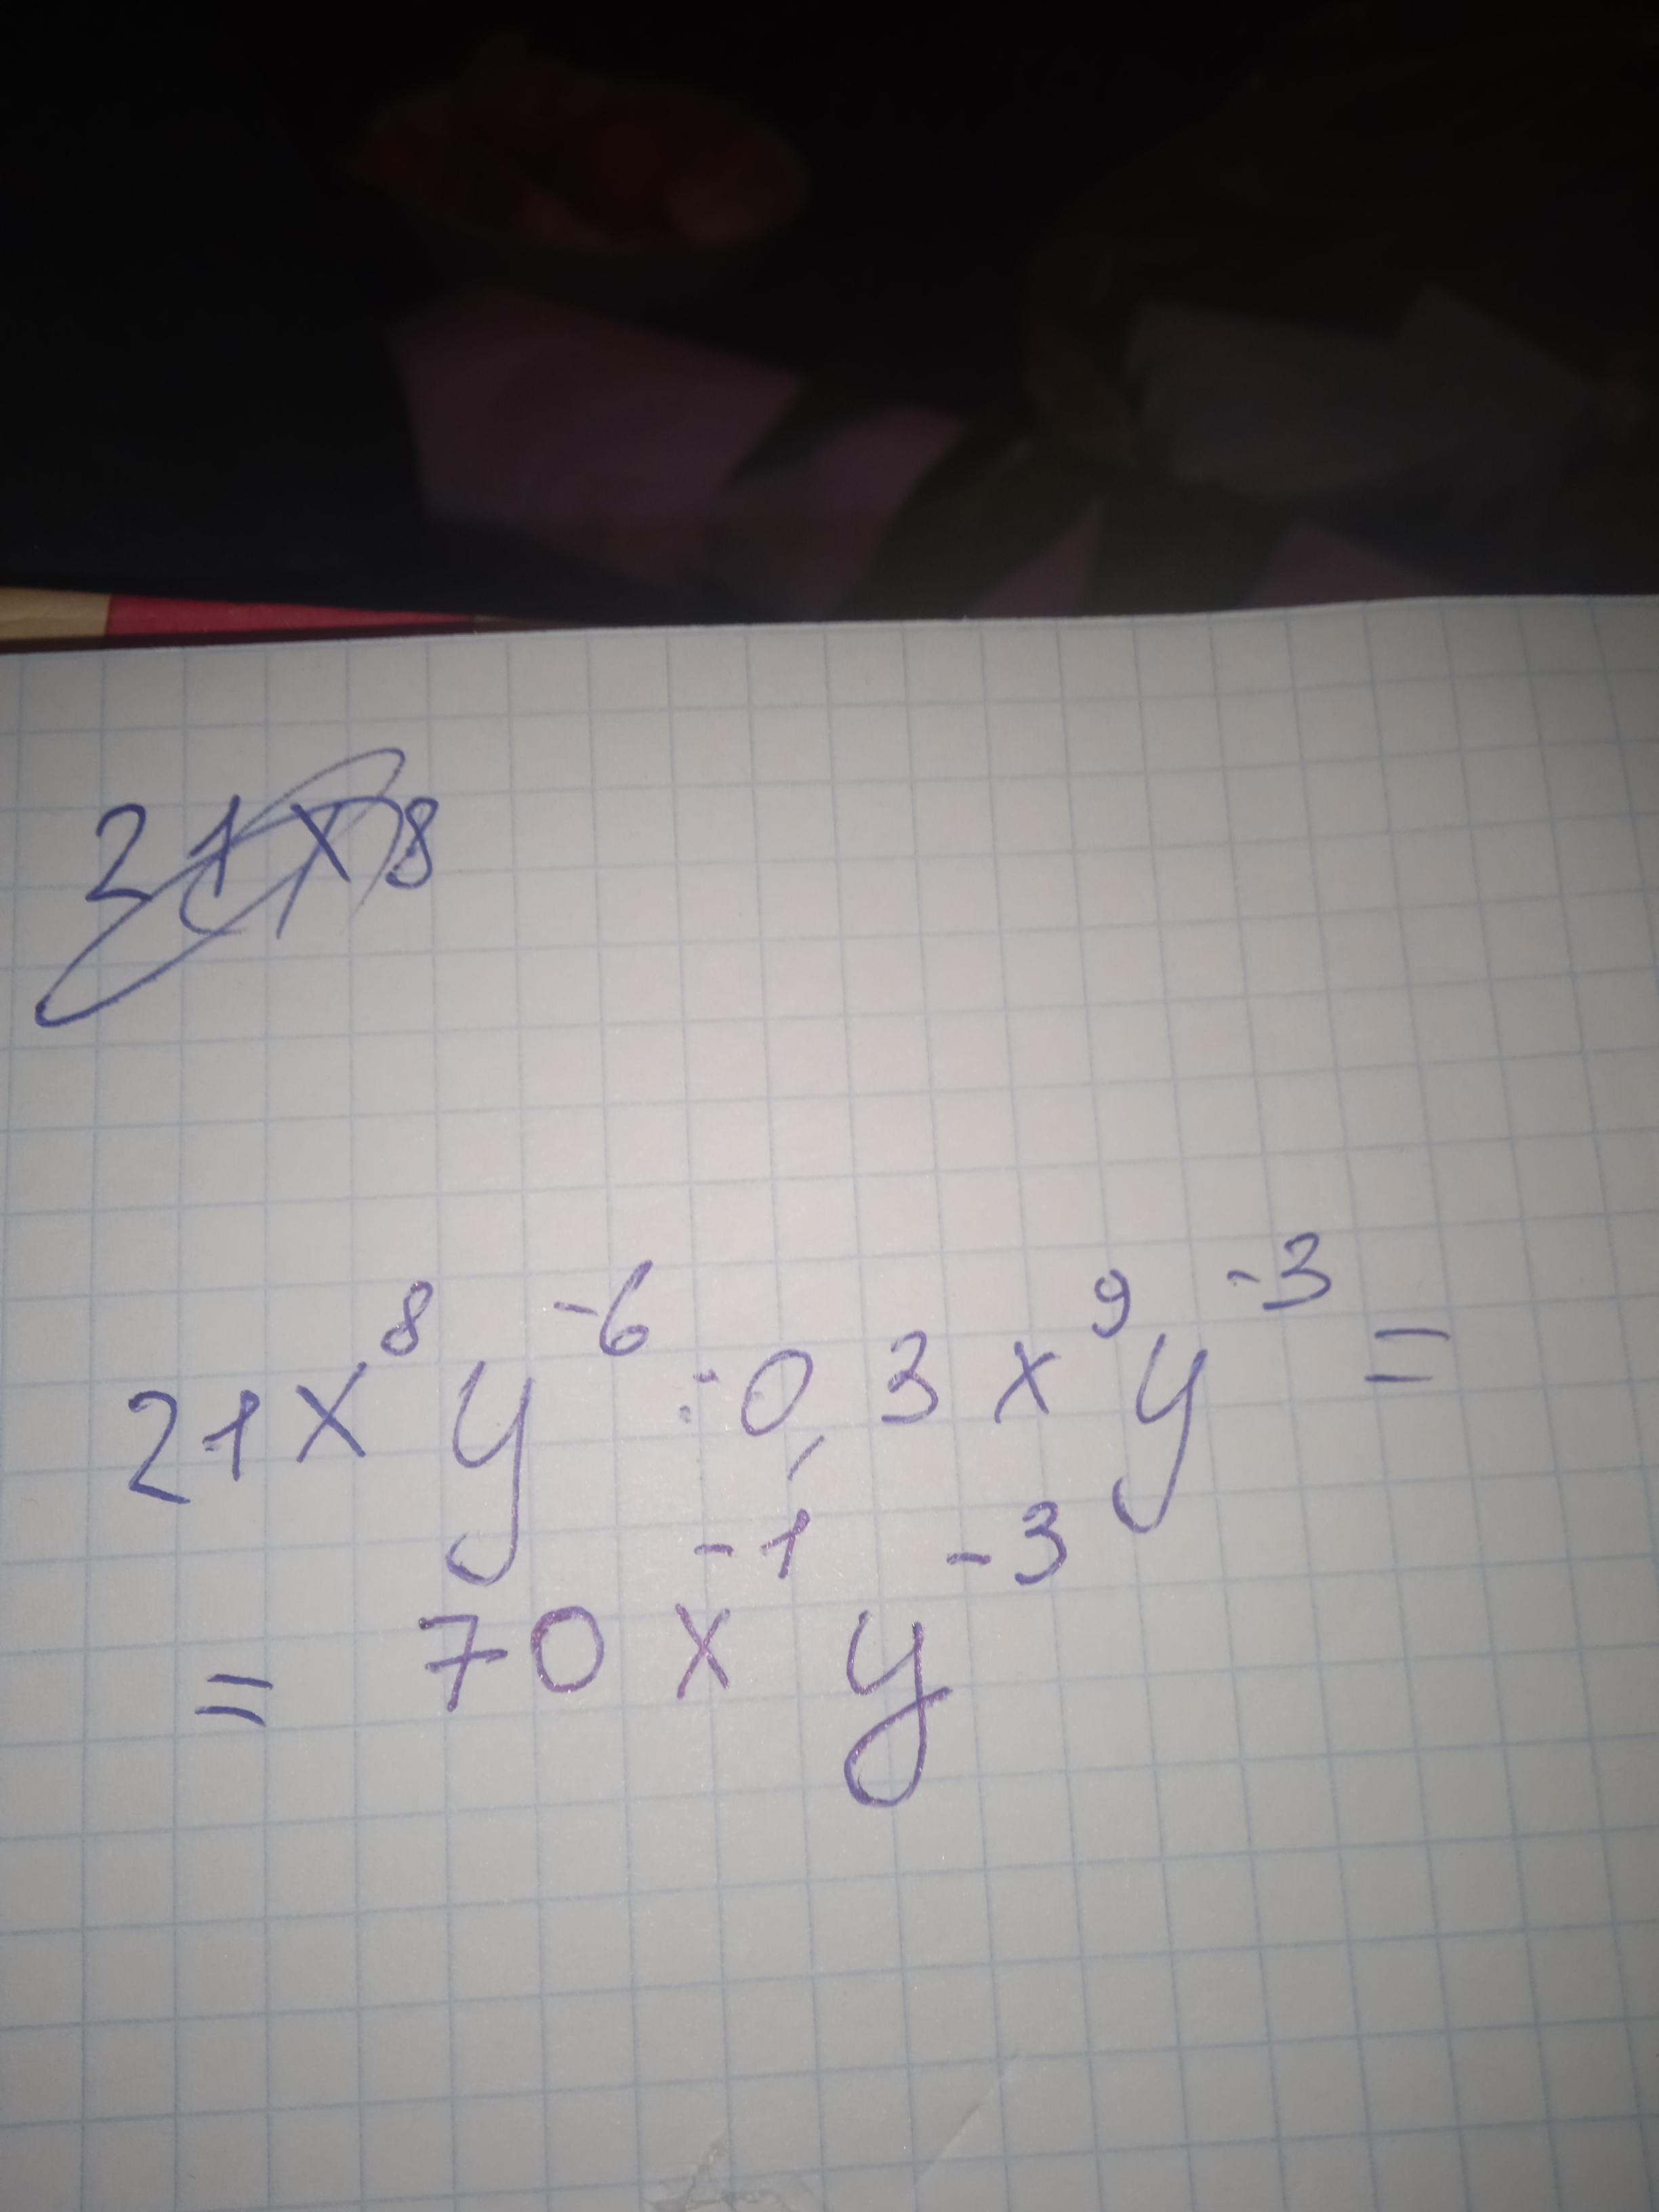 21x8
21x⁸y⁻⁶:0,3x⁹y⁻³=
=70x⁻¹y⁻³